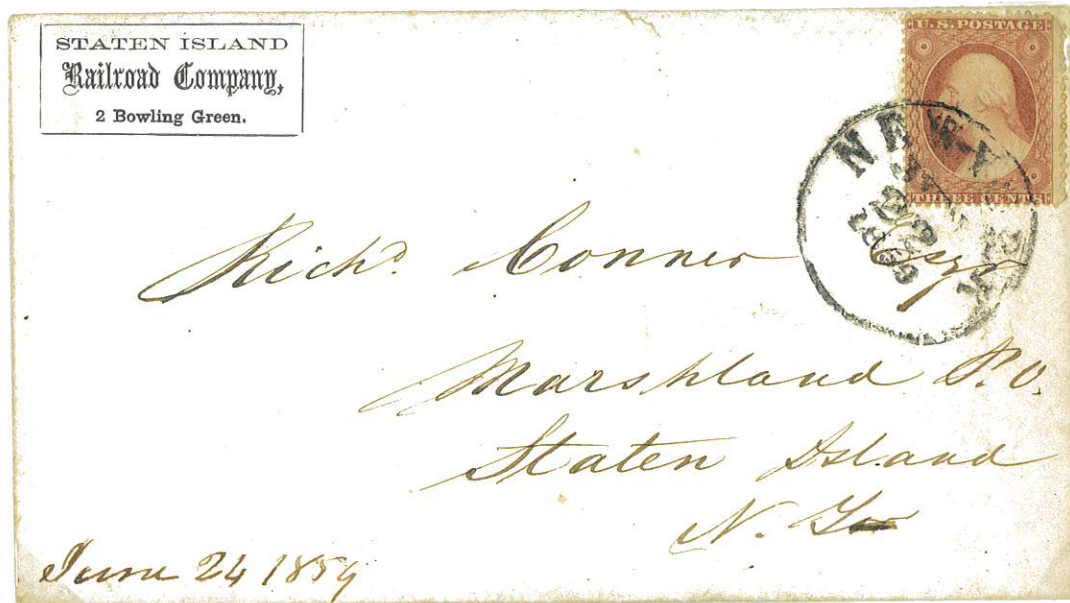 STATEN ISLAND
Railroad Company,
2 Bowling Green.
U.S. POSTAGE
THREE CENTS
NEW-YORK
1859
Richd. Conner Esqr
Marshland P.O.
Staten Island
N. Yo
June 24 1859